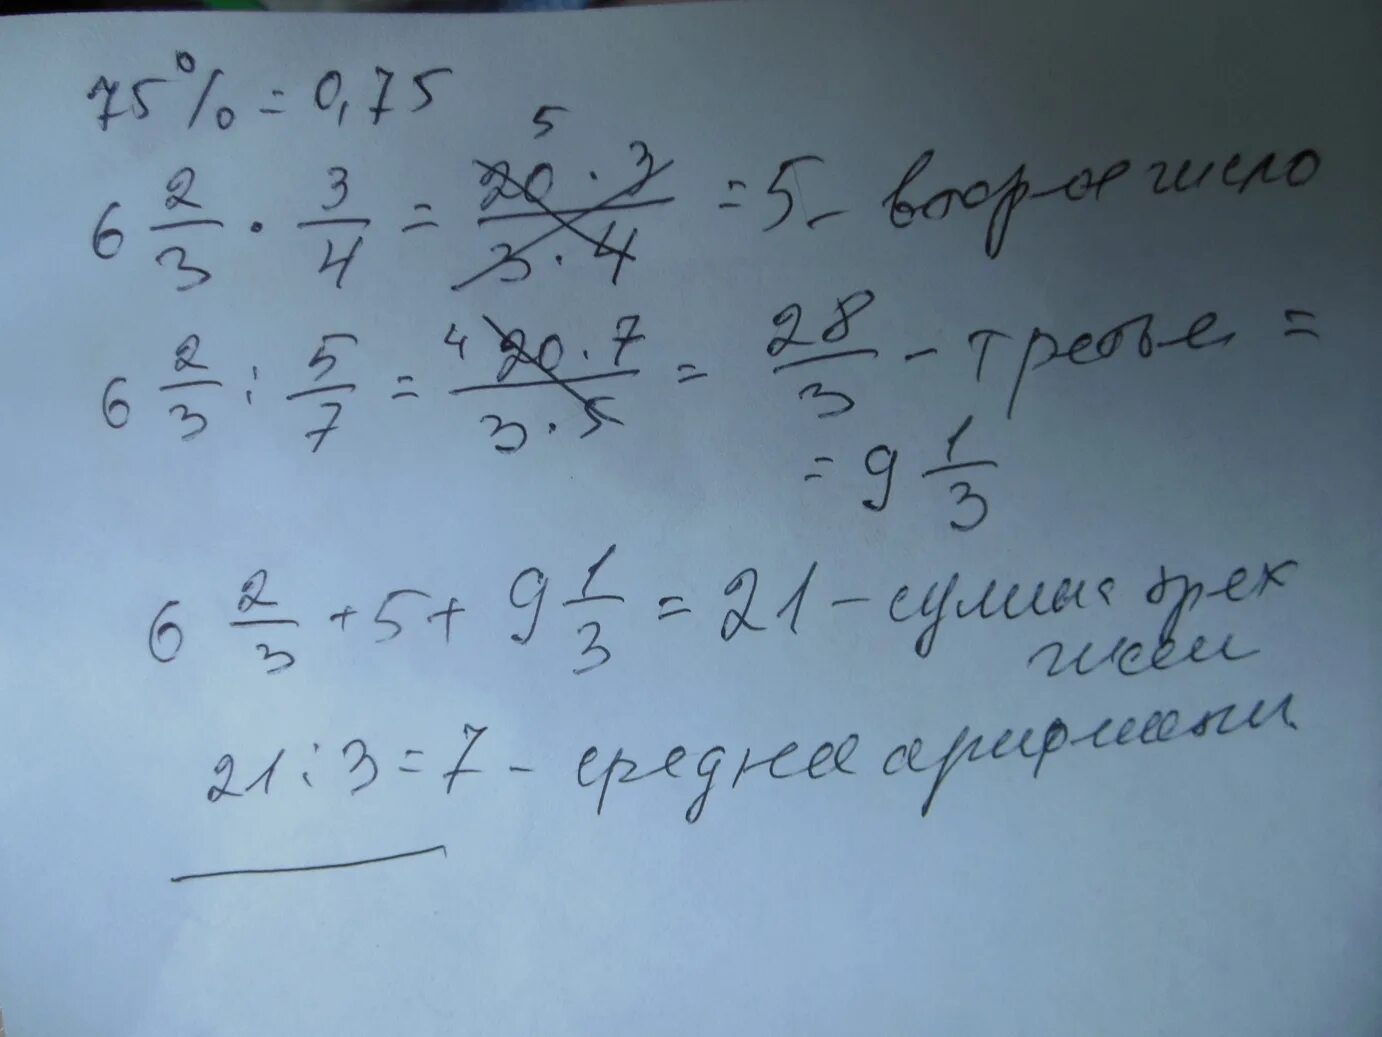 75% = 0,75
6 2/3 · 3/4 = 5 20 · 3 / 3 · 4 = 5 - второе число
6 2/3 : 5/7 = 4 20 · 7 / 3 · 5 = 28/3 - третье =
= 9 1/3
6 2/3 + 5 + 9 1/3 = 21 - сумма трех
чисел
21 : 3 = 7 - среднее